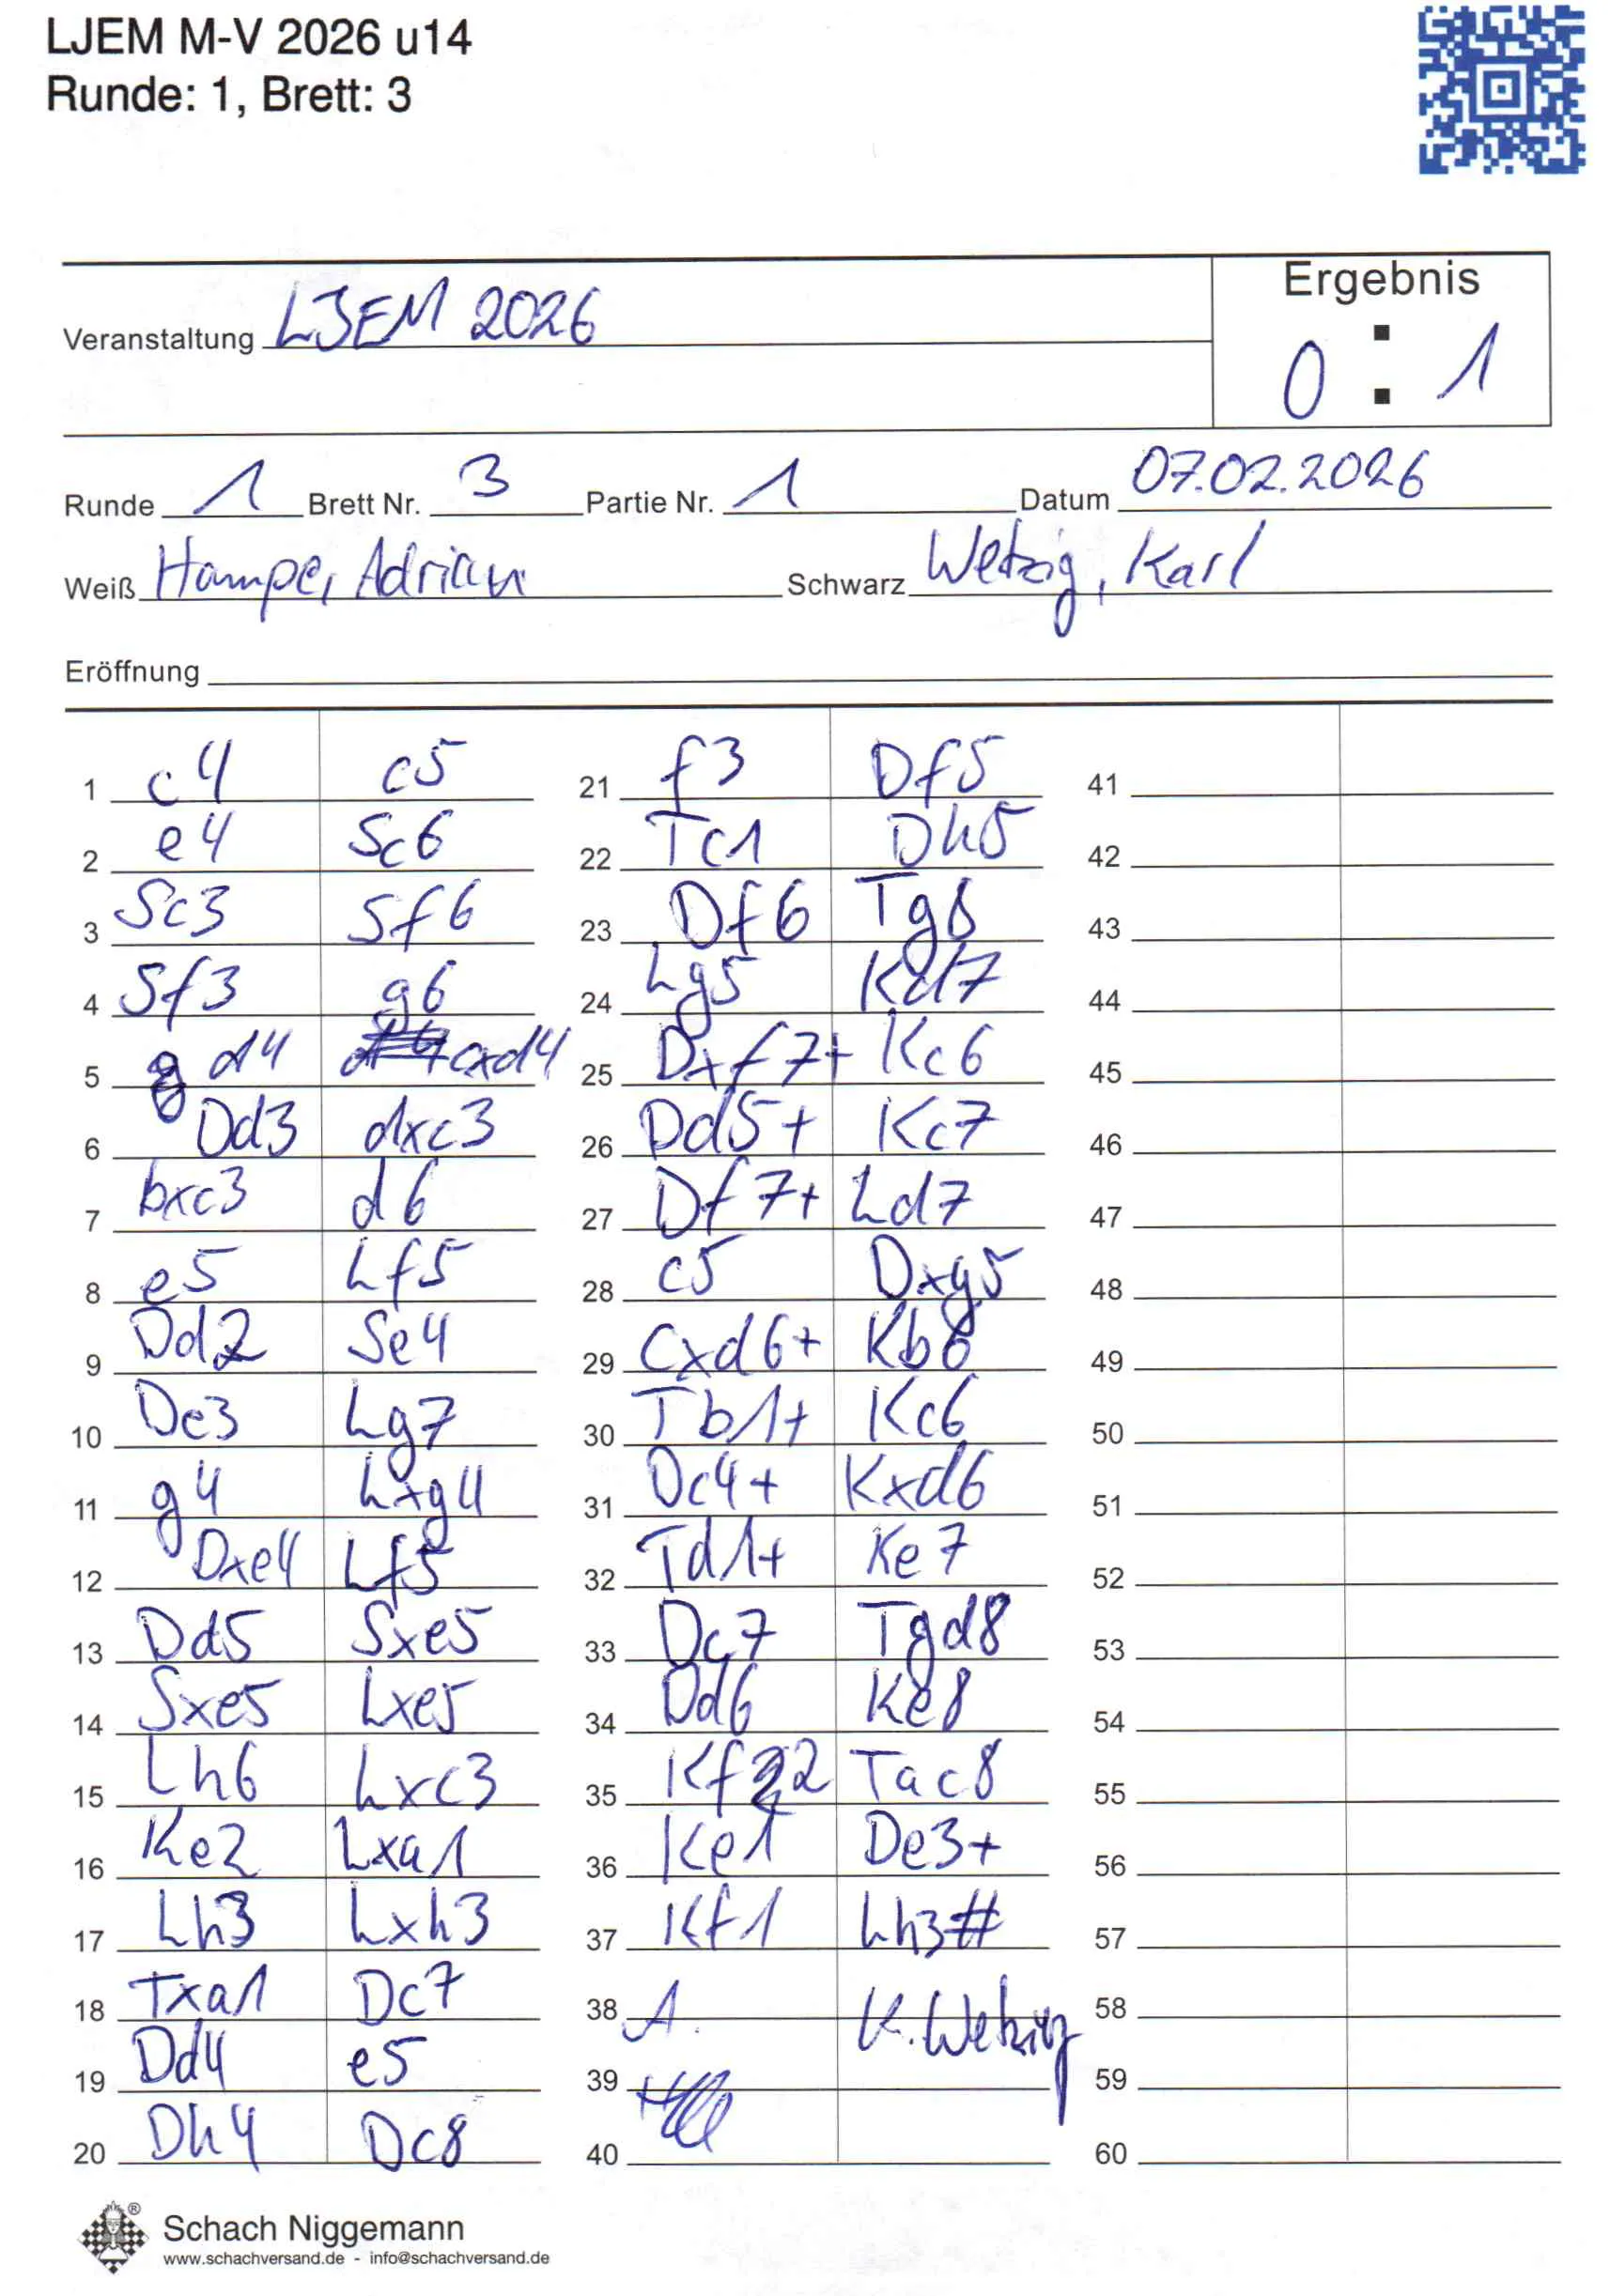 LJEM M-V 2026 u14
Runde: 1, Brett: 3
Ergebnis
Veranstaltung LJEM 2026
0 : 1
Runde 1 Brett Nr. 3 Partie Nr. 1 Datum 07.02.2026
Weiß Hampe, Adrian Schwarz Wetzig, Karl
Eröffnung
1 c4 c5
2 e4 Sc6
3 Sc3 Sf6
4 Sf3 g6
5 d4 cxd4
6 Dd3 dxc3
7 bxc3 d6
8 e5 Lf5
9 Dd2 Se4
10 De3 Lg7
11 g4 Lxg4
12 Dxe4 Lf5
13 Dd5 Sxe5
14 Sxe5 Lxe5
15 Lh6 Lxc3
16 Ke2 Lxa1
17 Lh3 Lxh3
18 Txa1 Dc7
19 Dd4 e5
20 Dh4 Dc8
21 f3 Df5
22 Tc1 Dh5
23 Df6 Tg8
24 Lg5 Kd7
25 Dxf7+ Kc6
26 Dd5+ Kc7
27 Df7+ Ld7
28 c5 Dxg5
29 cxd6+ Kb6
30 Tb1+ Kc6
31 Dc4+ Kxd6
32 Td1+ Ke7
33 Dc7 Tgd8
34 Dd6 Ke8
35 Kf2 Tac8
36 Ke1 De3+
37 Kf1 Lh3#
38 A. K. Wetzig
39
40
41
42
43
44
45
46
47
48
49
50
51
52
53
54
55
56
57
58
59
60
Schach Niggemann
www.schachversand.de - info@schachversand.de